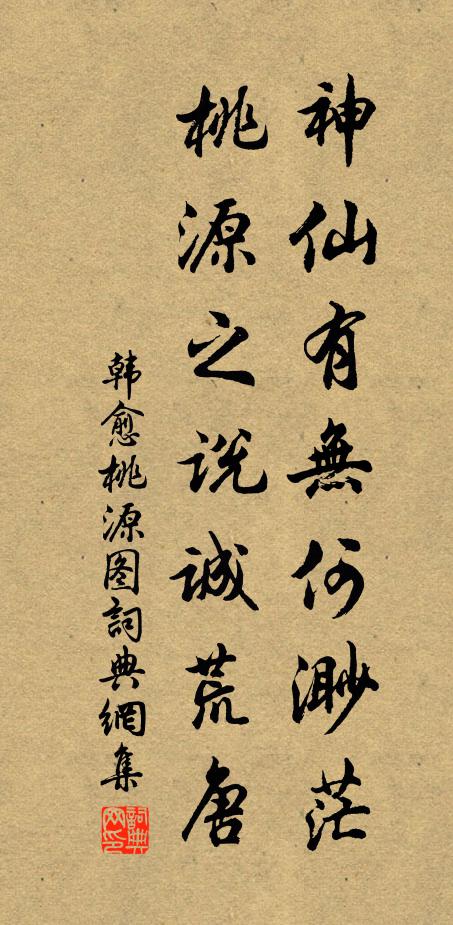 神仙有無何渺茫
桃源之説誠荒唐
韓愈桃源图詞典網集
詞典網印